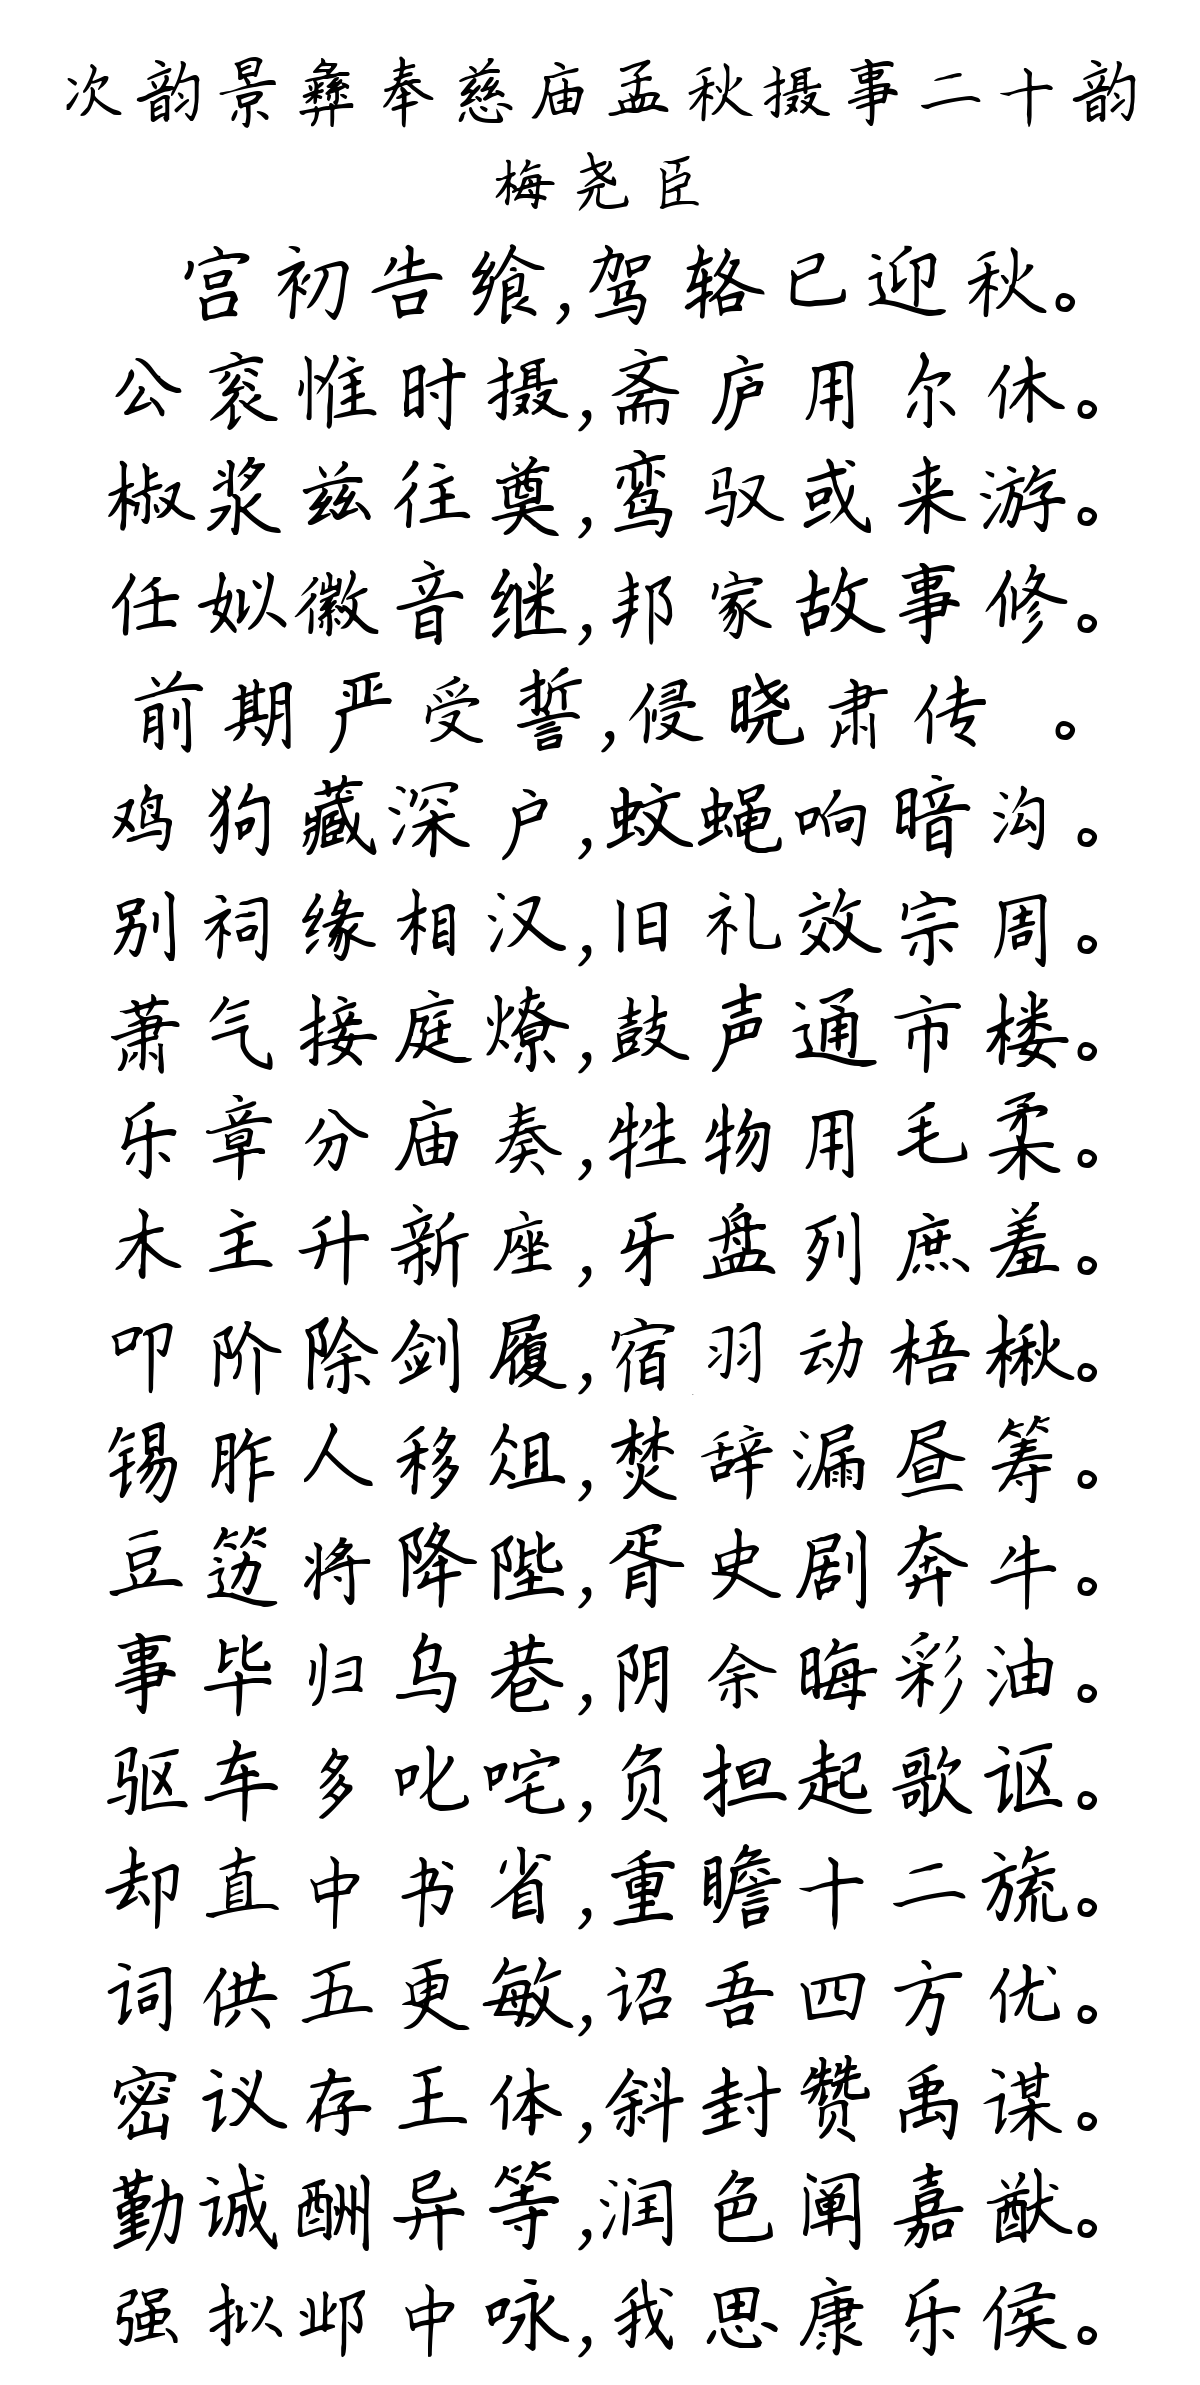 次韵景彝奉慈庙孟秋摄事二十韵
梅尧臣
宫初告飨,驾辂已迎秋。
公衮惟时摄,斋庐用尔休。
椒浆兹往奠,鸾驭或来游。
任姒徽音继,邦家故事修。
前期严受誓,侵晓肃传 。
鸡狗藏深户,蚊蝇响暗沟。
别祠缘相汉,旧礼效宗周。
萧气接庭燎,鼓声通市楼。
乐章分庙奏,牲物用毛柔。
木主升新座,牙盘列庶羞。
叩阶除剑履,宿羽动梧楸。
锡胙人移俎,焚辞漏昼筹。
豆笾将降陛,胥史剧奔牛。
事毕归乌巷,阴余晦彩油。
驱车多叱咤,负担起歌讴。
却直中书省,重瞻十二旒。
词供五更敏,诏吾四方优。
密议存王体,斜封赞禹谋。
勤诚酬异等,润色阐嘉猷。
强拟邺中咏,我思康乐侯。